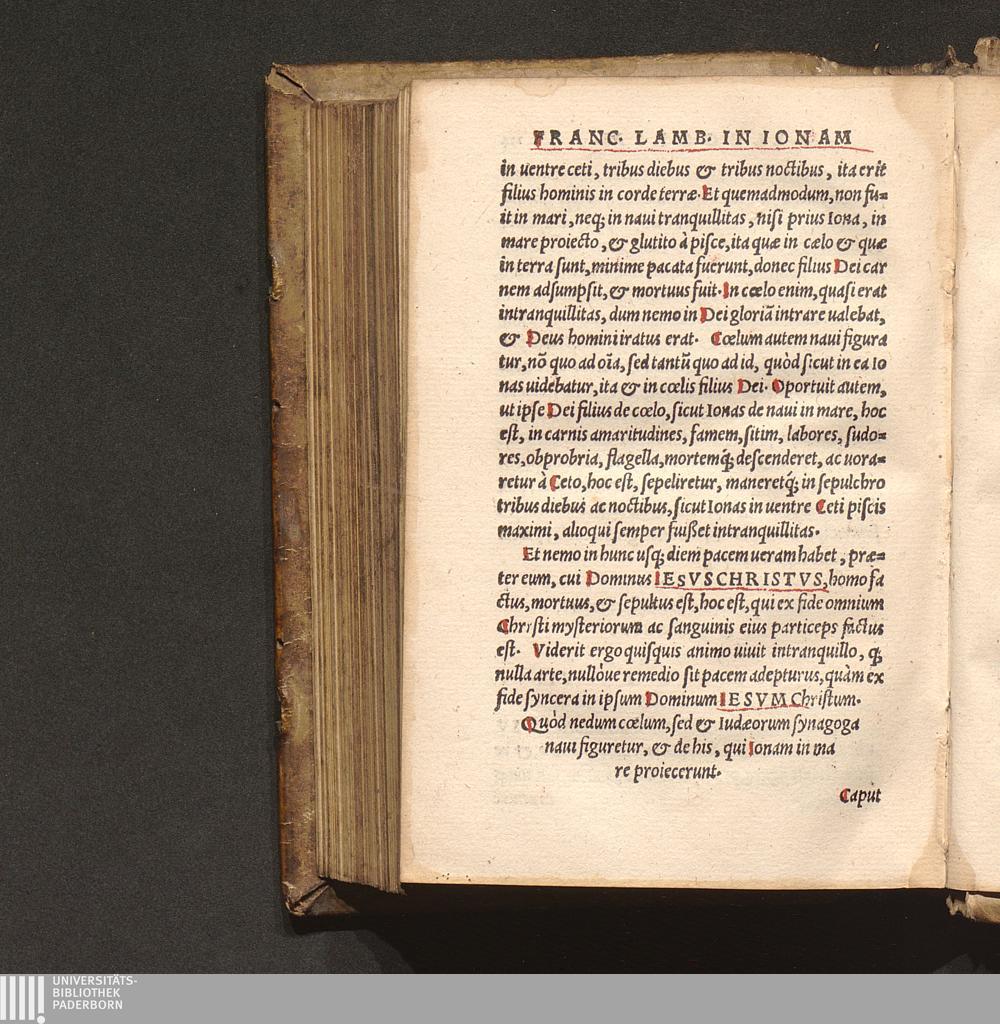 FRANC. LAMB. IN IONAM
in uentre ceti, tribus diebus & tribus noctibus, ita erit
filius hominis in corde terræ. Et quemadmodum, non fu=
it in mari, neq; in naui tranquillitas, nisi prius Iona, in
mare proiecto, & glutito à pisce, ita quæ in cælo & quæ
in terra sunt, minime pacata fuerunt, donec filius Dei car
nem adsumpsit, & mortuus fuit. In cœlo enim, quasi erat
intranquillitas, dum nemo in Dei gloriã intrare ualebat,
& Deus homini iratus erat. Cœlum autem naui figura
tur, nõ quo ad oĩa, sed tantũ quo ad id, quòd sicut in ea Io
nas uidebatur, ita & in cœlis filius Dei. Oportuit autem,
ut ipse Dei filius de cœlo, sicut Ionas de naui in mare, hoc
est, in carnis amaritudines, famem, sitim, labores, sudo=
res, obprobria, flagella, mortemq́; descenderet, ac uora=
retur à Ceto, hoc est, sepeliretur, maneretq́; in sepulchro
tribus diebus ac noctibus, sicut Ionas in uentre Ceti piscis
maximi, alioqui semper fuißet intranquillitas.
Et nemo in hunc usq; diem pacem ueram habet, præ=
ter eum, cui Dominus IESVS CHRISTVS, homo fa
ctus, mortuus, & sepultus est, hoc est, qui ex fide omnium
Christi mysteriorum ac sanguinis eius particeps factus
est. Viderit ergo quisquis animo uiuit intranquillo, q;
nulla arte, nullóue remedio sit pacem adepturus, quàm ex
fide syncera in ipsum Dominum IESVM Christum.
Quòd nedum cœlum, sed & Iudæorum synagoga
naui figuretur, & de his, qui Ionam in ma
re proiecerunt.
Caput
UNIVERSITÄTS-
BIBLIOTHEK
PADERBORN